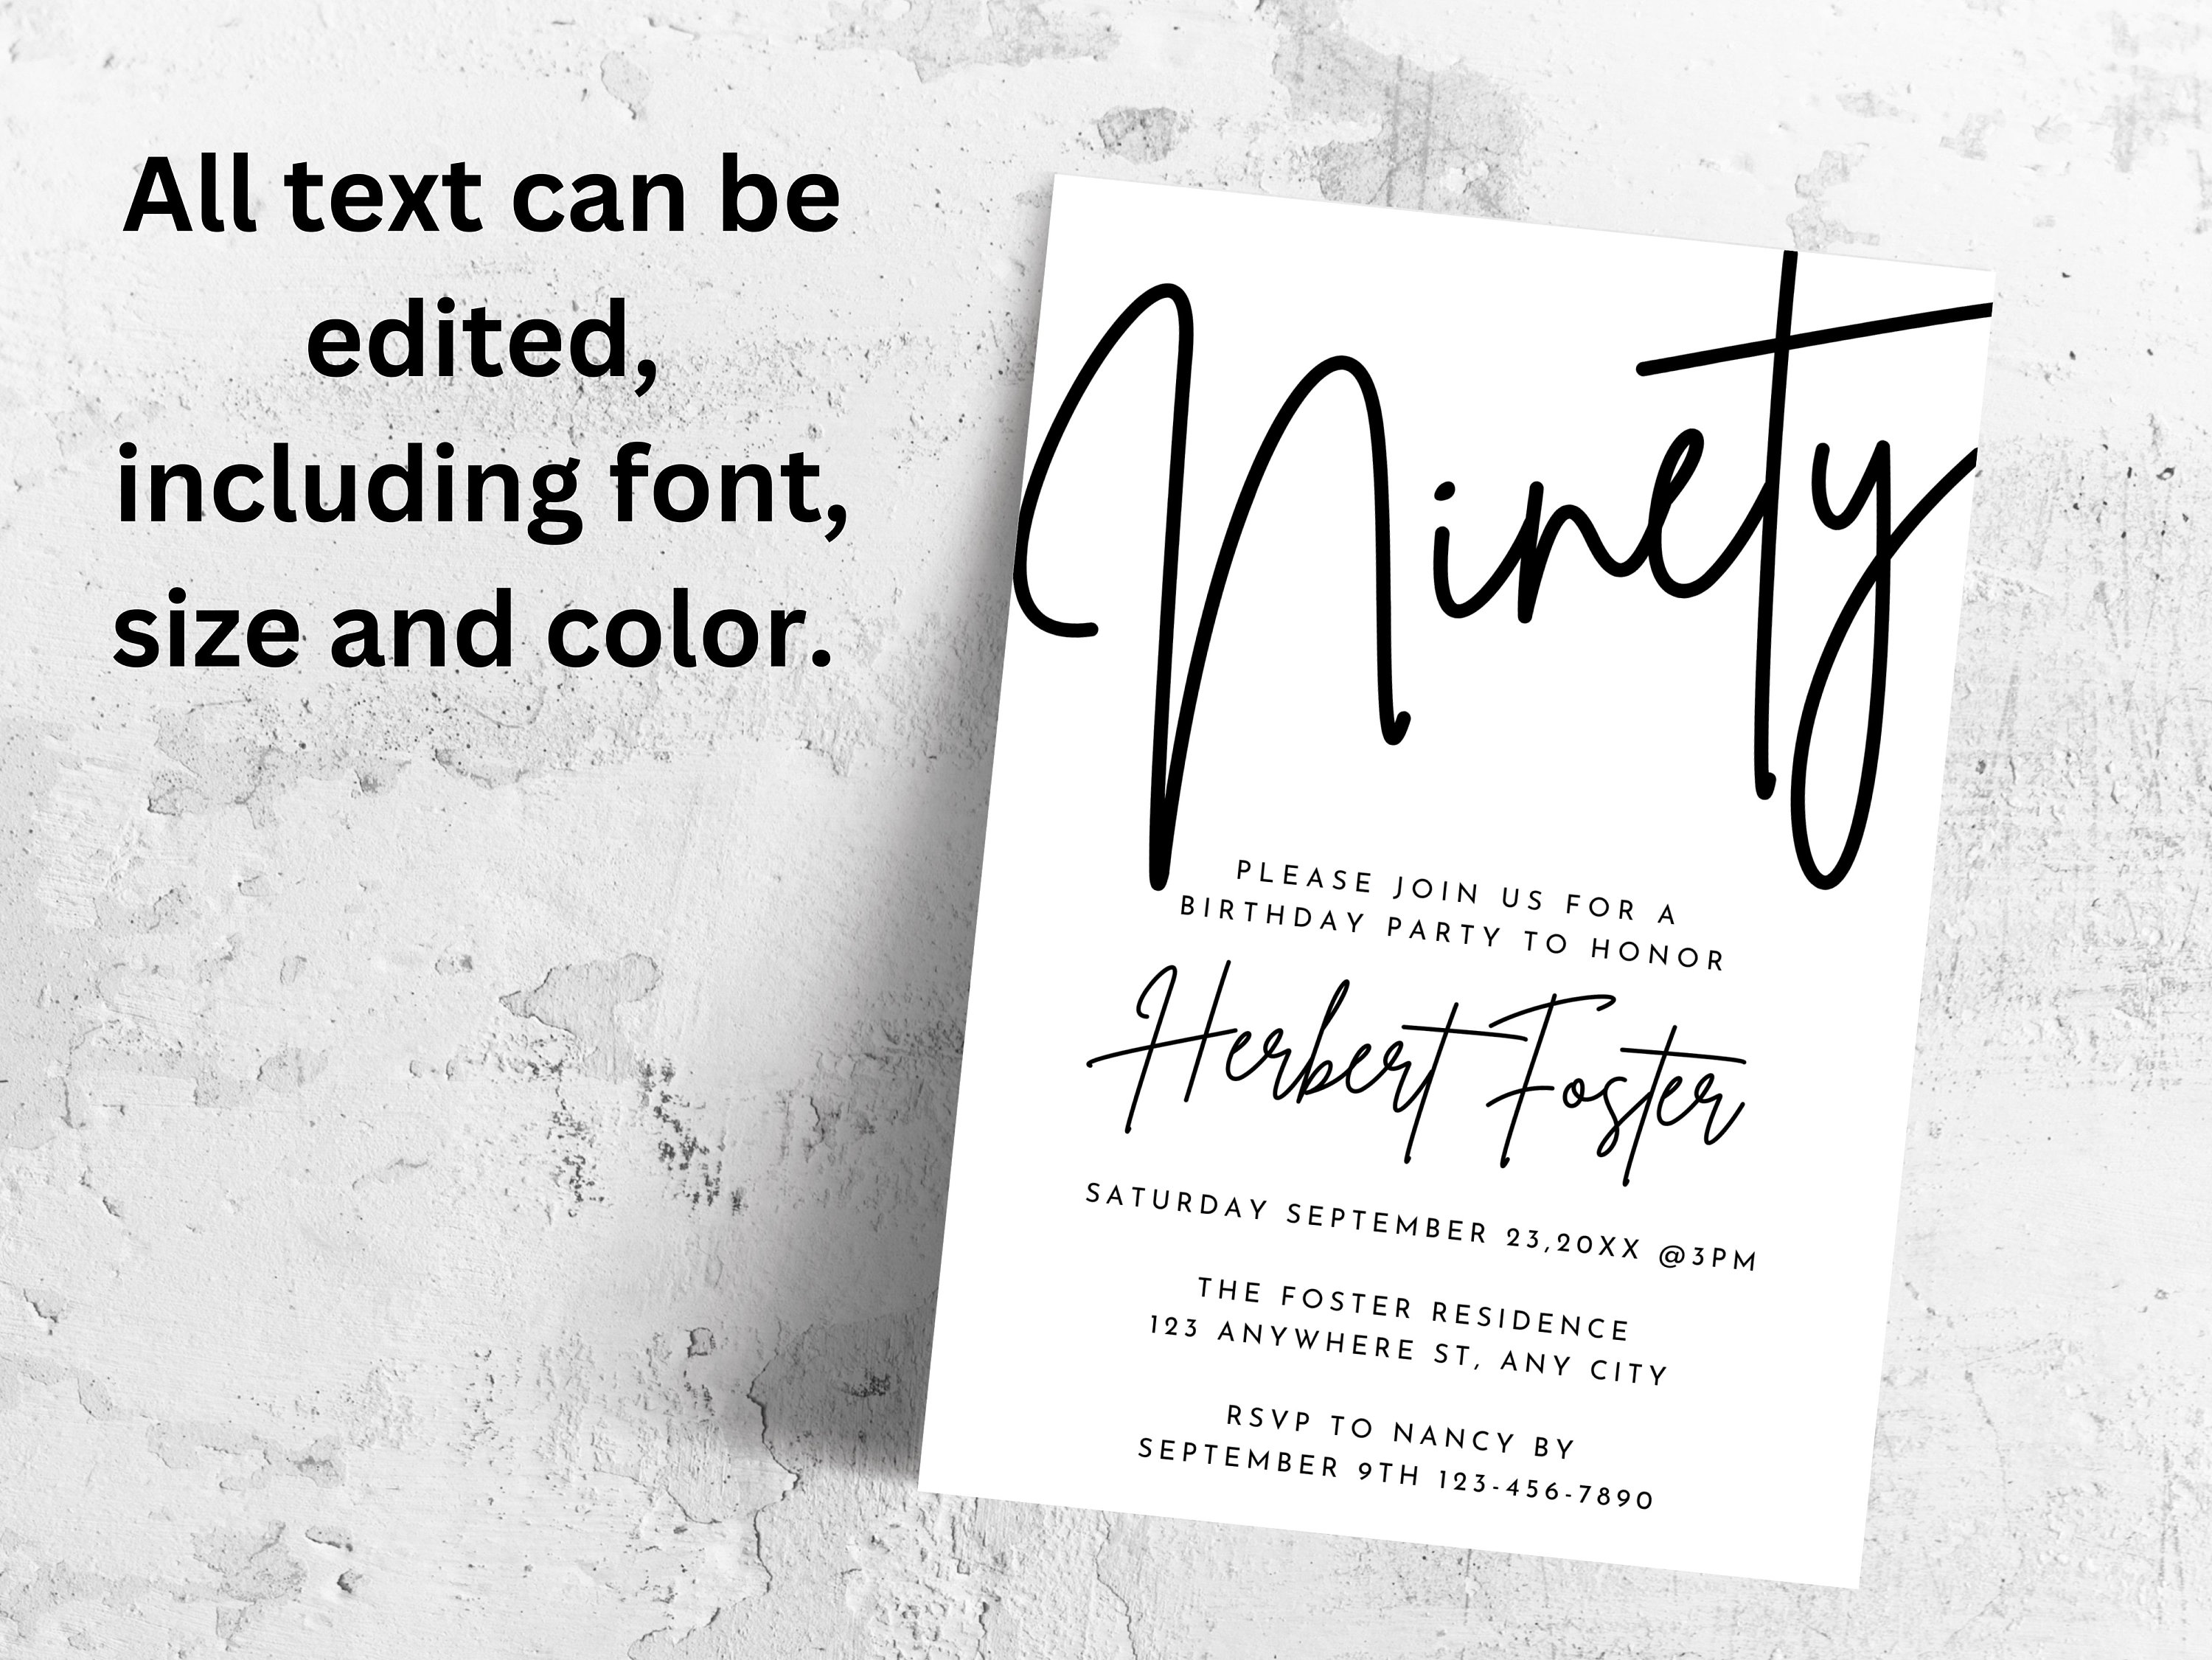 All text can be
edited,
including font,
size and color.
Ninety
PLEASE JOIN US FOR A
BIRTHDAY PARTY TO HONOR
Herbert Foster
SATURDAY SEPTEMBER 23,20XX @3PM
THE FOSTER RESIDENCE
123 ANYWHERE ST, ANY CITY
RSVP TO NANCY BY
SEPTEMBER 9TH 123-456-7890